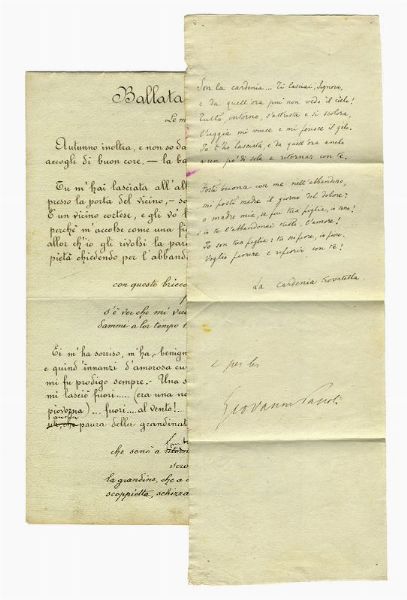 Ballata
Le m
Autunno inoltra, e non so da
accogli di buon core, — la ba
Tu m'hai lasciata all'al
presso la porta del vicino, — so
È un vicino cortese, e gli vo'
perché m'accolse come una fig
allor ch'io gli rividi la pari
pietà chiedendo per l'abband
con queste bricco
s'è ver che mi vu
dammi a lor tempo
Ei m'ha sorriso, m'ha, benign
e quind'innanzi d'amorosa cu
mi fu prodigo sempre. Una s
mi lasciò fuori..... (era una no
piovorna)... fuori.... al vento!..
paura della grandinat
che sonò a
la grandine, che a
scoppietta, schizza
Son la cardenia... Tu lasciai, Signora,
e da quell'ora più non vedo il cielo!
Tutto, intorno, s'attrista e si scolora,
l'uggia mi vince e mi ferisce il gelo.
Io t'ho lasciata, e da quell'ora anelo
a un po' di sole e ritornar con te.
Fosti buona con me nell'abbandono,
mi fosti madre il giorno del dolore:
o madre mia, se pur tua figlia io sono!
Io son tua figlia: tu rifiore, io fiore.
Voglio fiorire e rifiorir con te!
La Cardenia Trovatella
e per lei
Giovanni Pascoli